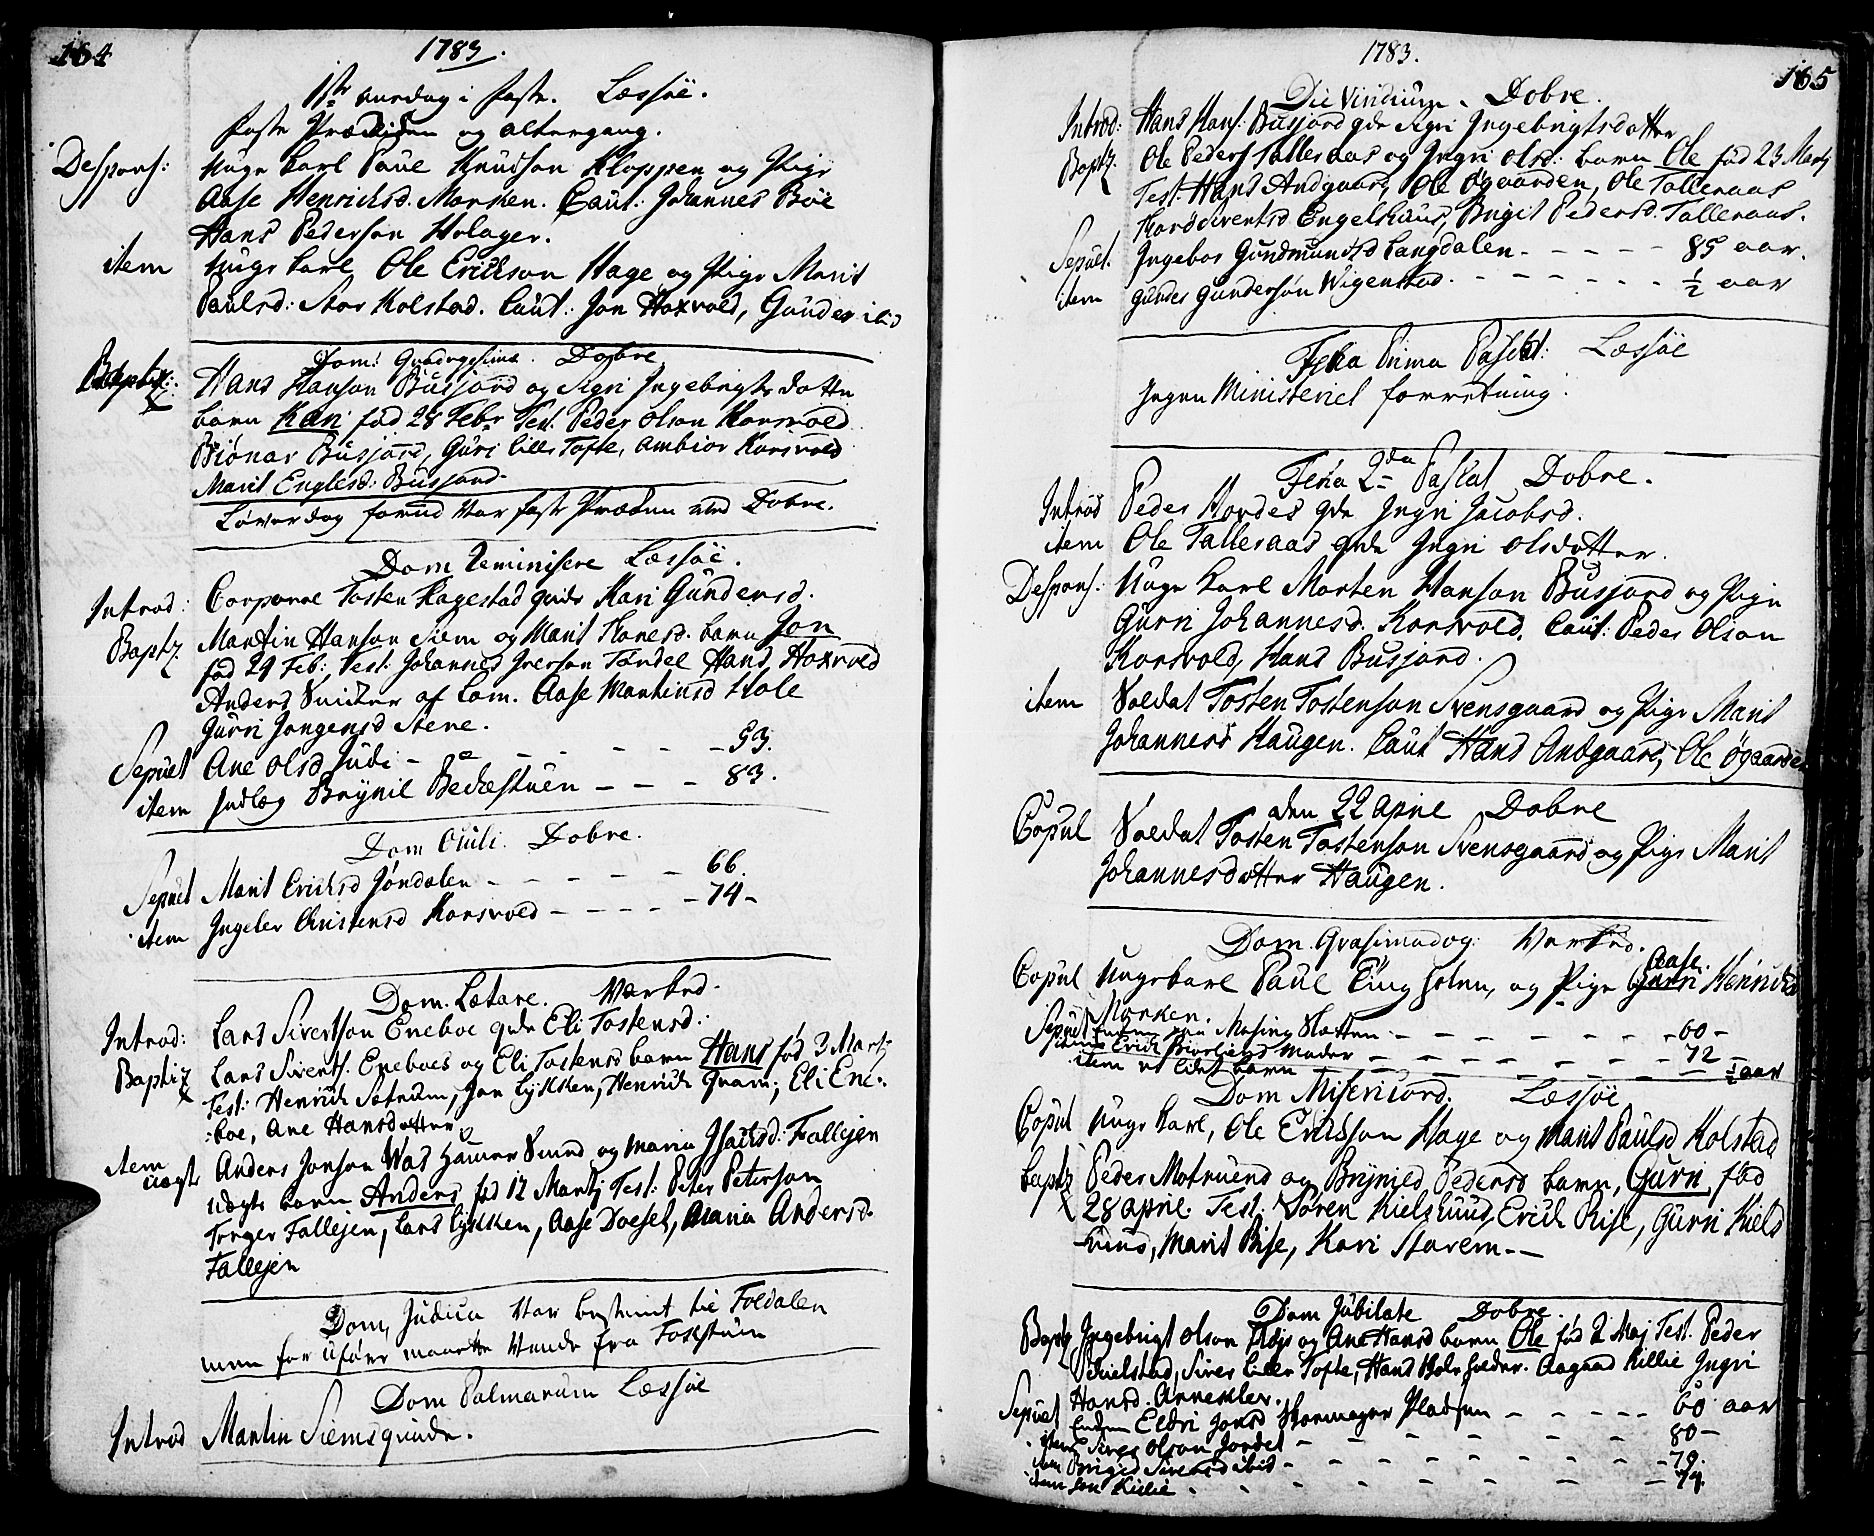 164
1783.
1ste onsdag i faste. Læssöe.
faste Prædiken og altergang.
Despons: unge karl Paul Knudson Kloppen og Pige
Aase Henrichsd. Morken. Caut: Johannes Böe
Hans Pederson Holager.
item unge karl Ole Erickson Hage og Pige Marit
Paulsd: Stor Kolstad. Caut: Jon Hoxvold, Gunder ibid
Dom: Quadragesima. Dobre
Baptiz: Hans Hanson Busjord og Sigri Ingebrigts dotter
barn Kari fød 28 Febr Test. Peder Olson Korsvold
Biönar Busjord, Guri lille Tofte, Ambior Korsvold
Marit Englesd: Busjord
Löverdag forud var faste Præken ved Dobre.
Dom Reminisere Læssöe.
Introd: Corporal Tosten Hagestad qvinde Kari Gundersd.
Baptz. Martin Hanson Siem og Marit Toresd. barn Jon
fød 24 Feb: Test. Johannes Iverson Tordel Hans Hoxvold
Anders Snicker af Lom. Aase Martinsd Hole
Gurri Jongensd Stene.
Sepult Ane Olsd Judi - - - - - 53.
item Indlæg Brynil Beckestuen - - - 83.
Dom Oculi. Dobre.
Sepult Marit Ericksd Jöndalen - - - - - 66.
item Ingeler Christensd Korsvold - - - - - 74 -
Dom. Lætare. Warked.
Introd: Lars Sivertson Eneboe qvde Eli Tostensd.
Baptiz Lars Siverts. Eneboes og Eli Tostensd barn Hans fød 3 Martz
Test: Henrich Sætrum, Jon Lykken, Henrich Qvam, Eli Ene-
:boe, Ane Hansdotter
item uægte Anders Jonson Was Hamer Smed og Maria Isachsd: Fallejen
uægte barn Anders fød 12 Martj Test: Peter Peterson
Torger Fallejen, Lars Lykken, Aase Doesel, Maria Andersd.
Fallejen
Dom, Judica var bestemt til Foldalen
men for uföre maatte vende fra Fockstuen
Dom Palmarum Læssöe
Introd Martin Siems qvinde.
165
1783.
Die Viridium. Dobre.
Introd: Hans Hans. Busjord qvde Sigri Ingebrigtsdotter
Baptz. Ole Peders Talleraas og Ingri Olsd: barn Ole fød 23 Martz
Test: Hans Andgaard, Ole Øgaarden, Ole Talleraas
Tord Sivertsd Engelshuus, Brigit Pedersd. Talleraas.
Sepult. Ingebor Gundmundsd Langdalen - - - - - 85 aar.
item Gunder Gunderson Wigenstad. - - - - - - ½ aar
Feria Prima Paschat: Læssöe
Ingen Ministeriel forretning.
Feria 2da Paschat Dobre.
Introd Peder Hordes qvde Ingri Jacobsd.
item Ole Talleraas qvde Ingri Olsdotter.
Despons: Unge karl Morten Hanson Busjord og Pige
Gurri Johannesd. Korsvold. Caut: Peder Olson
Korsvold, Hans Busjord.
item Soldat Tosten Tostenson Svensgaard og Pige Marit
Johannesd Haugen. Caut Hans Andgaard, Ole Øgaarden
den 22 April Dobre
Copul Soldat Tosten Tostenson Svensgaard og Pige Marit
Johannesdotter Haugen.
Dom. Qvasimodog. Warked.
Copul Ungekarl Paul, og Pige Gurri Aase Henrichsd
Morken.
Sepult Mosing Slætten - - - - - - 60 -
item Erick Moder - - - - - - 72 -
item et lidet barn - - - - - - ½ aar
Dom Misericord. Læssöe
Copul Unge karl, Ole Erickson Hage og Marit Paulsd Kolstad
baptz Peder Motruend og Brynild Pedersd barn, Gurri, fød
28 april. Test. Sören Kielshuus, Erick Rise, Gurri Kiels
huus, Marit Rise, Kari Storem. --
Dom Jubilate Dobre.
Baptz Ingebrigt Olson og Ane Hansd barn Ole fød 2 Maj Test. Peder
Kielstad, Siver lille Tofte, Hans, Aagaad Killie Ingri
Hansd. Anrekler.
Sepult Enken Eldri Jonsd Skomager Pladsen - - - - - 60 aar
item Siver Olson Jordet - - - - - - 80 -
item Brigit Siversd ibid - - - - - - 79.
item Jon Kielie - - - - - - 74.